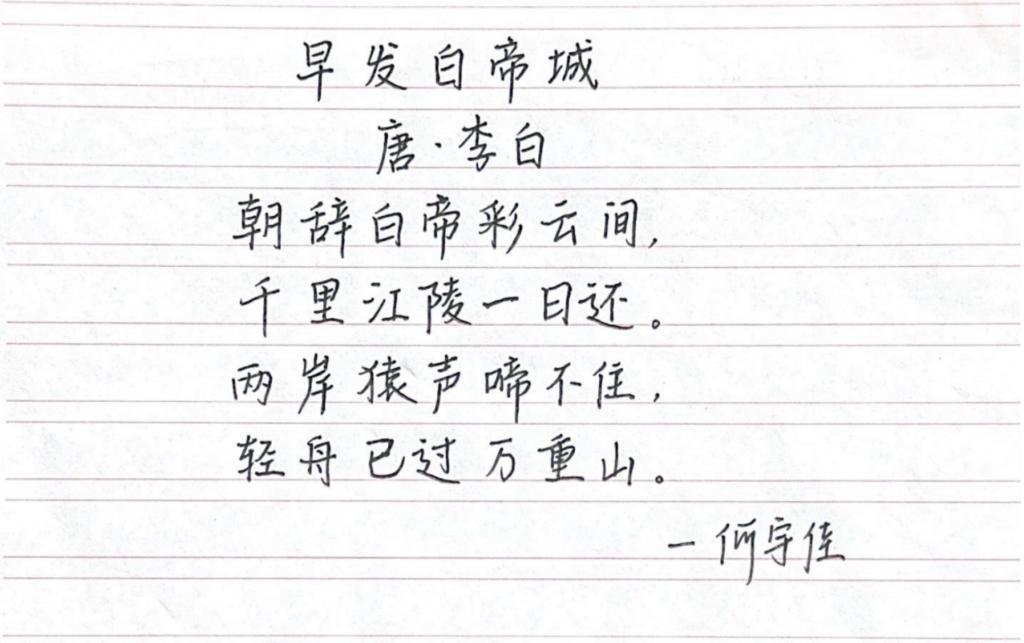 早发白帝城
唐·李白
朝辞白帝彩云间,
千里江陵一日还。
两岸猿声啼不住,
轻舟已过万重山。
—何宇佳